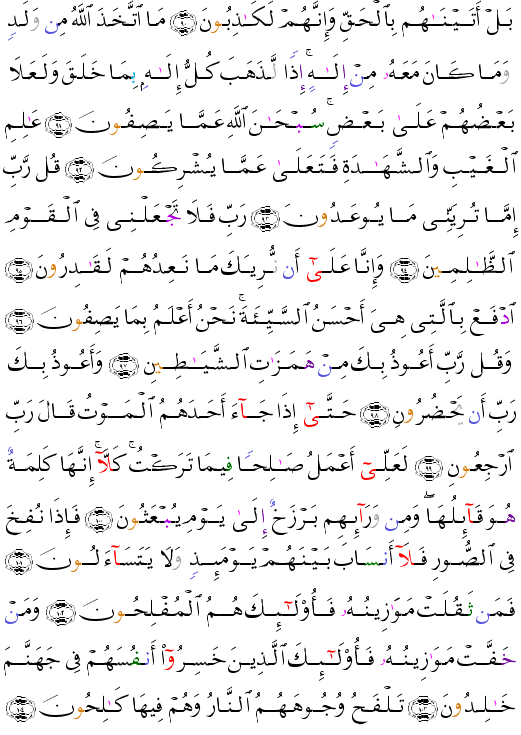 بَلْ أَتَيْنَـٰهُم بِٱلْحَقِّ وَإِنَّهُمْ لَكَـٰذِبُونَ ﴿٩٠﴾ مَا ٱتَّخَذَ ٱللَّهُ مِن وَلَدٍ
وَمَا كَانَ مَعَهُۥ مِنْ إِلَـٰهٍ ۚ إِذًا لَّذَهَبَ كُلُّ إِلَـٰهٍۭ بِمَا خَلَقَ وَلَعَلَا
بَعْضُهُمْ عَلَىٰ بَعْضٍ ۚ سُبْحَـٰنَ ٱللَّهِ عَمَّا يَصِفُونَ ﴿٩١﴾ عَـٰلِمِ
ٱلْغَيْبِ وَٱلشَّهَـٰدَةِ فَتَعَـٰلَىٰ عَمَّا يُشْرِكُونَ ﴿٩٢﴾ قُل رَّبِّ
إِمَّا تُرِيَنِّى مَا يُوعَدُونَ ﴿٩٣﴾ رَبِّ فَلَا تَجْعَلْنِى فِى ٱلْقَوْمِ
ٱلظَّـٰلِمِينَ ﴿٩٤﴾ وَإِنَّا عَلَىٰٓ أَن نُّرِيَكَ مَا نَعِدُهُمْ لَقَـٰدِرُونَ ﴿٩٥﴾
ٱدْفَعْ بِٱلَّتِى هِىَ أَحْسَنُ ٱلسَّيِّئَةَ ۚ نَحْنُ أَعْلَمُ بِمَا يَصِفُونَ ﴿٩٦﴾
وَقُل رَّبِّ أَعُوذُ بِكَ مِنْ هَمَزَٰتِ ٱلشَّيَـٰطِينِ ﴿٩٧﴾ وَأَعُوذُ بِكَ
رَبِّ أَن يَحْضُرُونِ ﴿٩٨﴾ حَتَّىٰٓ إِذَا جَآءَ أَحَدَهُمُ ٱلْمَوْتُ قَالَ رَبِّ
ٱرْجِعُونِ ﴿٩٩﴾ لَعَلِّىٓ أَعْمَلُ صَـٰلِحًا فِيمَا تَرَكْتُ ۚ كَلَّآ ۚ إِنَّهَا كَلِمَةٌ
هُوَ قَآئِلُهَا ۖ وَمِن وَرَآئِهِم بَرْزَخٌ إِلَىٰ يَوْمِ يُبْعَثُونَ ﴿١٠٠﴾ فَإِذَا نُفِخَ
فِى ٱلصُّورِ فَلَآ أَنسَابَ بَيْنَهُمْ يَوْمَئِذٍ وَلَا يَتَسَآءَلُونَ ﴿١٠١﴾
فَمَن ثَقُلَتْ مَوَٰزِينُهُۥ فَأُو۟لَـٰٓئِكَ هُمُ ٱلْمُفْلِحُونَ ﴿١٠٢﴾ وَمَنْ
خَفَّتْ مَوَٰزِينُهُۥ فَأُو۟لَـٰٓئِكَ ٱلَّذِينَ خَسِرُوٓا۟ أَنفُسَهُمْ فِى جَهَنَّمَ
خَـٰلِدُونَ ﴿١٠٣﴾ تَلْفَحُ وُجُوهَهُمُ ٱلنَّارُ وَهُمْ فِيهَا كَـٰلِحُونَ ﴿١٠٤﴾